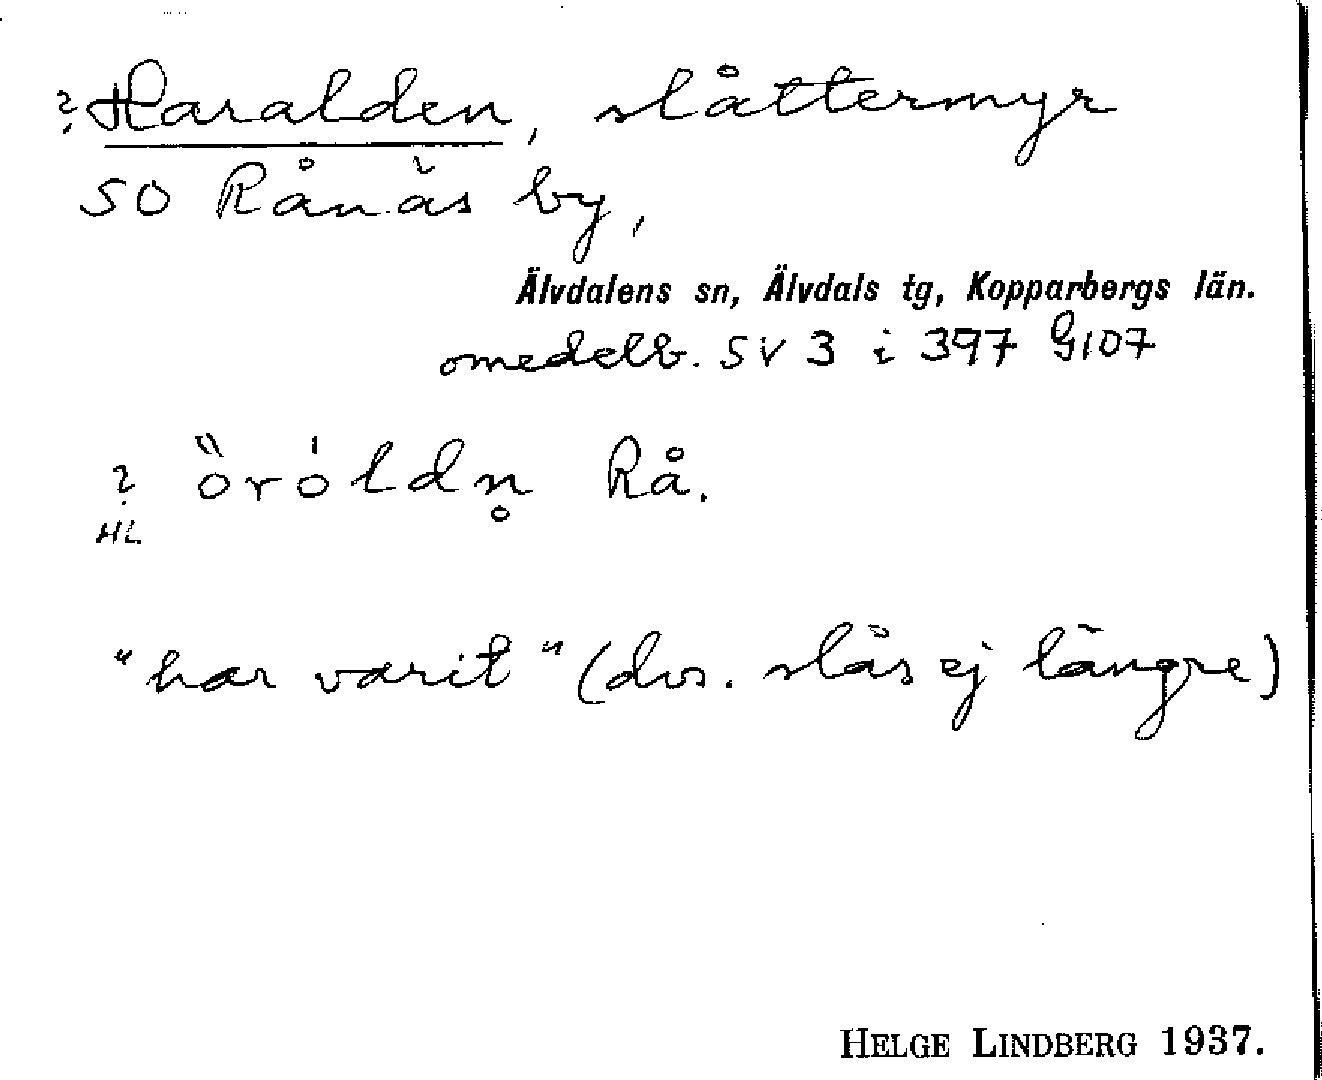 ? Haralden, slåttermyr
SO Rånäs by,
Älvdalens sn, Älvdals tg, Kopparbergs län.
omedelb. SV 3 i 397 G107
? ö̀róldn̥ Rå.
HL
"har varit" (dvs. slås ej längre)
HELGE LINDBERG 1937.